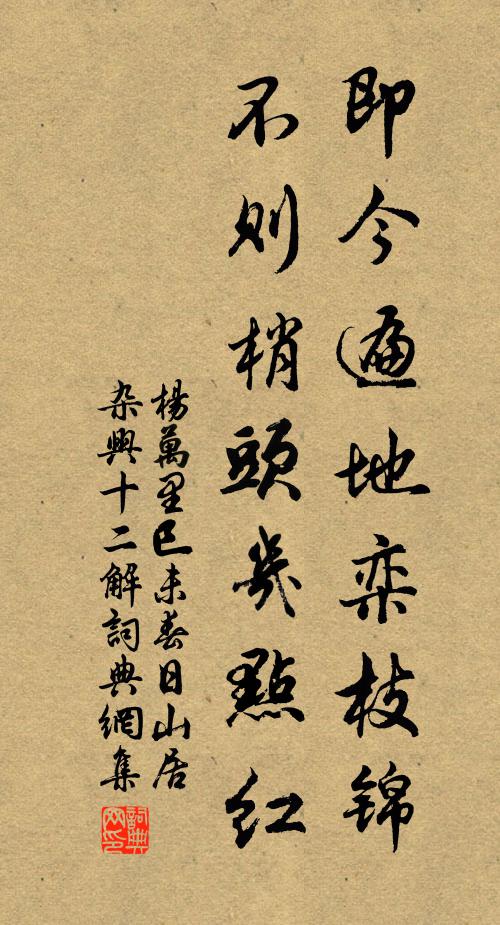 即今遍地栾枝锦
不则梢頭幾點红
楊萬里已未春日山居
杂興十二解詞典網集
詞典网印